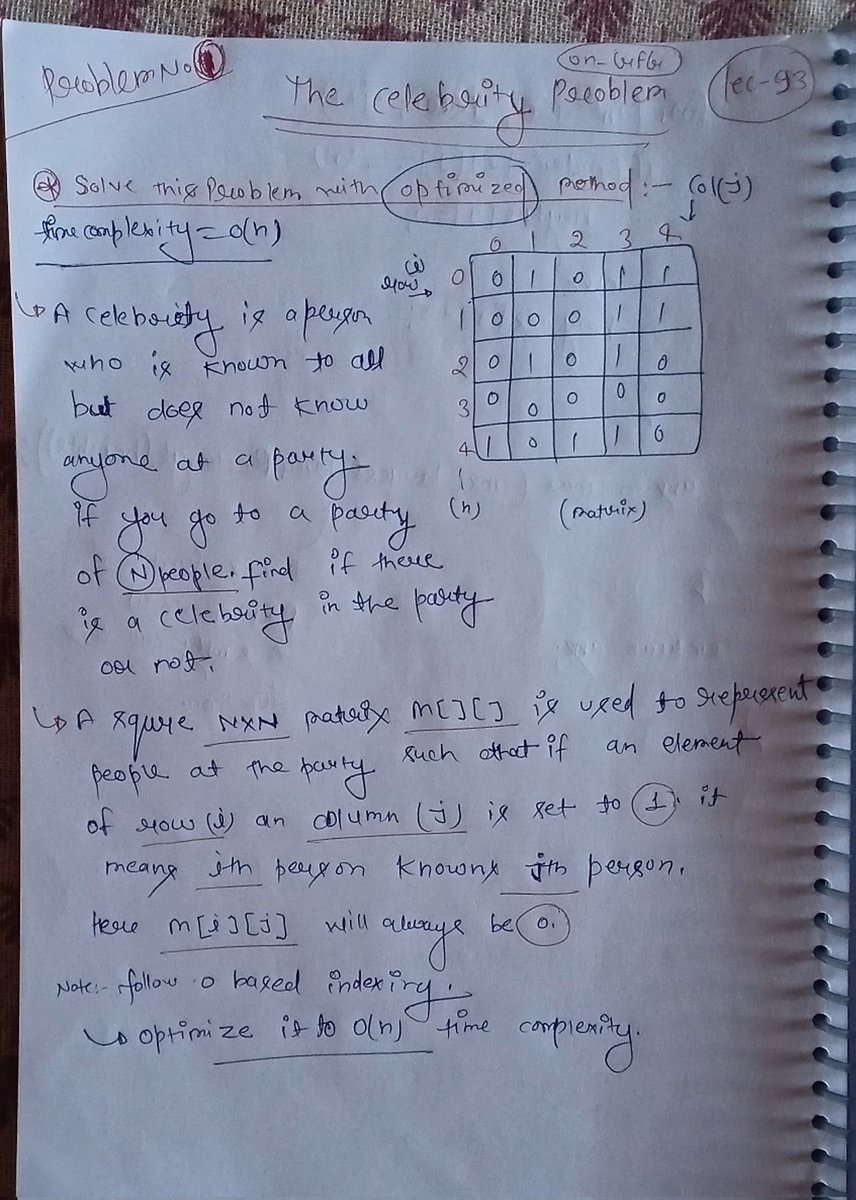 Problem No 1
on-GfG
The celebrity Problem
lec-93
* Solve this Problem with optimized method:-
col(j)
time complexity = O(n)
0 1 2 3 4
row (i) →
0 0 1 0 1 1
1 0 0 0 1 1
2 0 1 0 1 0
3 0 0 0 0 0
4 1 0 1 1 0
(n) (matrix)
↳ A celebrity is a person
who is known to all
but does not know
anyone at a party.
if you go to a party
of N people. find if there
is a celebrity in the party
or not.
↳ A squre NxN matrix M[][] is used to represent
people at the party such that if an element
of row (i) an column (j) is set to 1. it
means ith person knowns jth person.
Here M[i][j] will always be 0.
Note:- follow 0 based indexing.
↳ optimize it to O(n) time complexity.